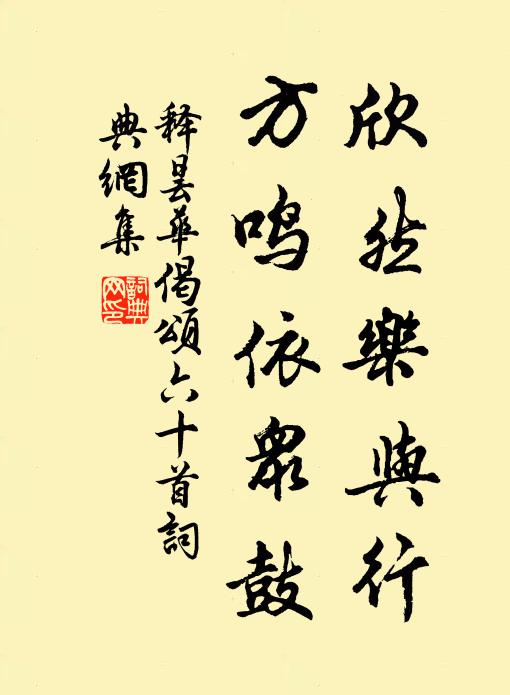 欣然樂與行
方鳴依眾鼓
释曇華偈頌六十首詞
典網集
詞典
网印